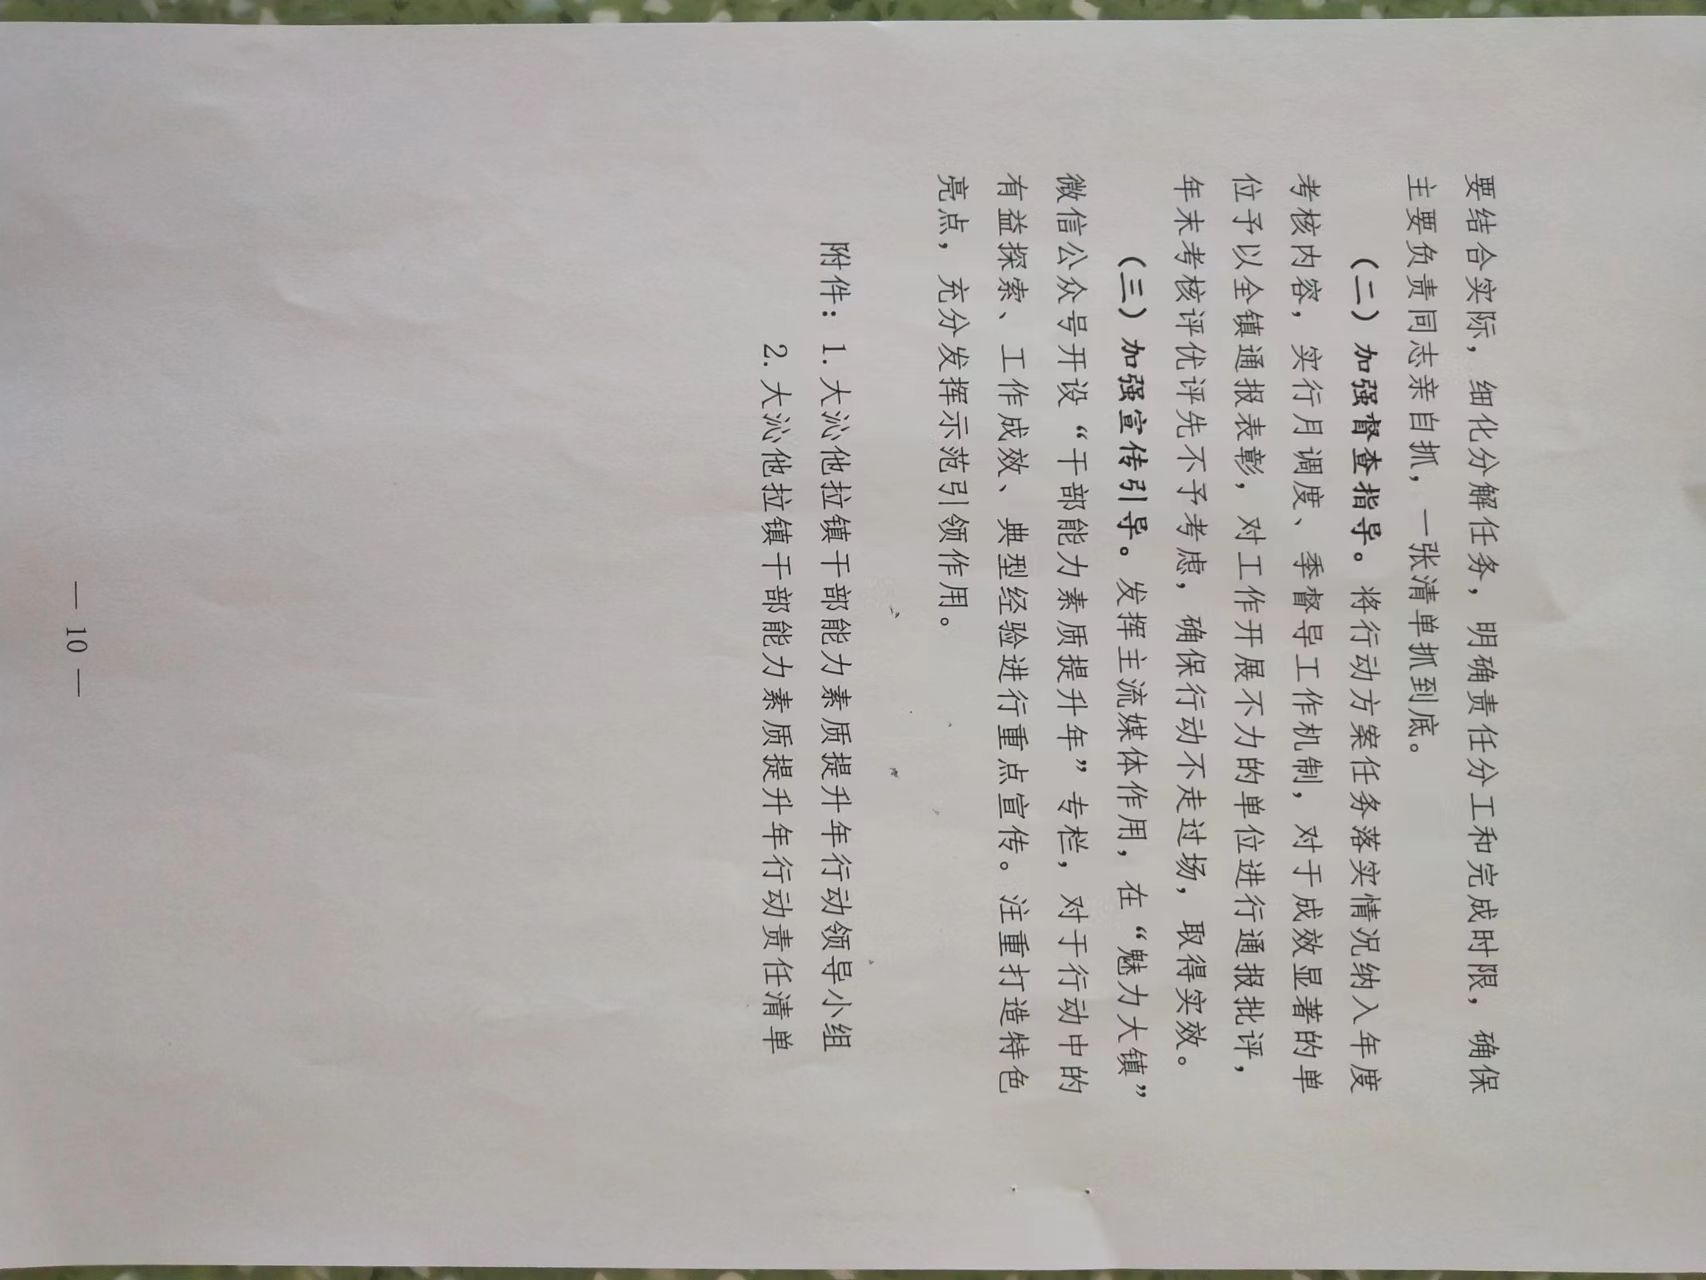 要结合实际，细化分解任务，明确责任分工和完成时限，确保
主要负责同志亲自抓，一张清单抓到底。
（二）加强督查指导。将行动方案任务落实情况纳入年度
考核内容，实行月调度、季督导工作机制，对于成效显著的单
位予以全镇通报表彰，对工作开展不力的单位进行通报批评，
年末考核评优评先不予考虑，确保行动不走过场，取得实效。
（三）加强宣传引导。发挥主流媒体作用，在“魅力大镇”
微信公众号开设“干部能力素质提升年”专栏，对于行动中的
有益探索、工作成效、典型经验进行重点宣传。注重打造特色
亮点，充分发挥示范引领作用。
附件：1.大沁他拉镇干部能力素质提升年行动领导小组
2.大沁他拉镇干部能力素质提升年行动责任清单
— 10 —